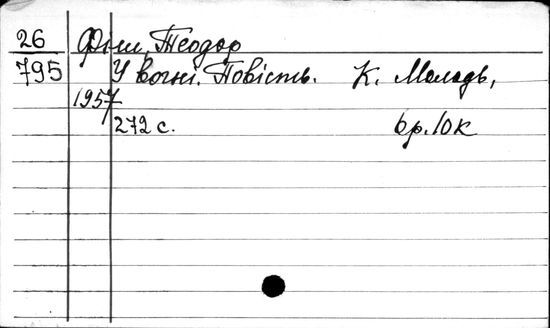 26 Фіш, Теодор
795 У вогні. Повість. К. Молодь,
1957
272 с. 6р.10к